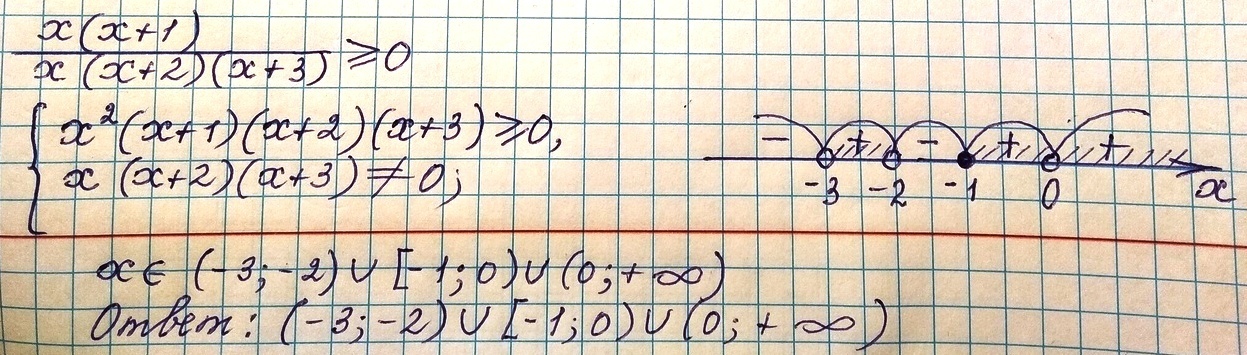 x(x+1)
x(x+2)(x+3) ≥0
x²(x+1)(x+2)(x+3)≥0,
x(x+2)(x+3)≠0;
− + − + +
-3 -2 -1 0 x
x∈ (-3;-2)∪[-1;0)∪(0;+∞)
Ответ: (-3;-2)∪[-1;0)∪(0;+∞)